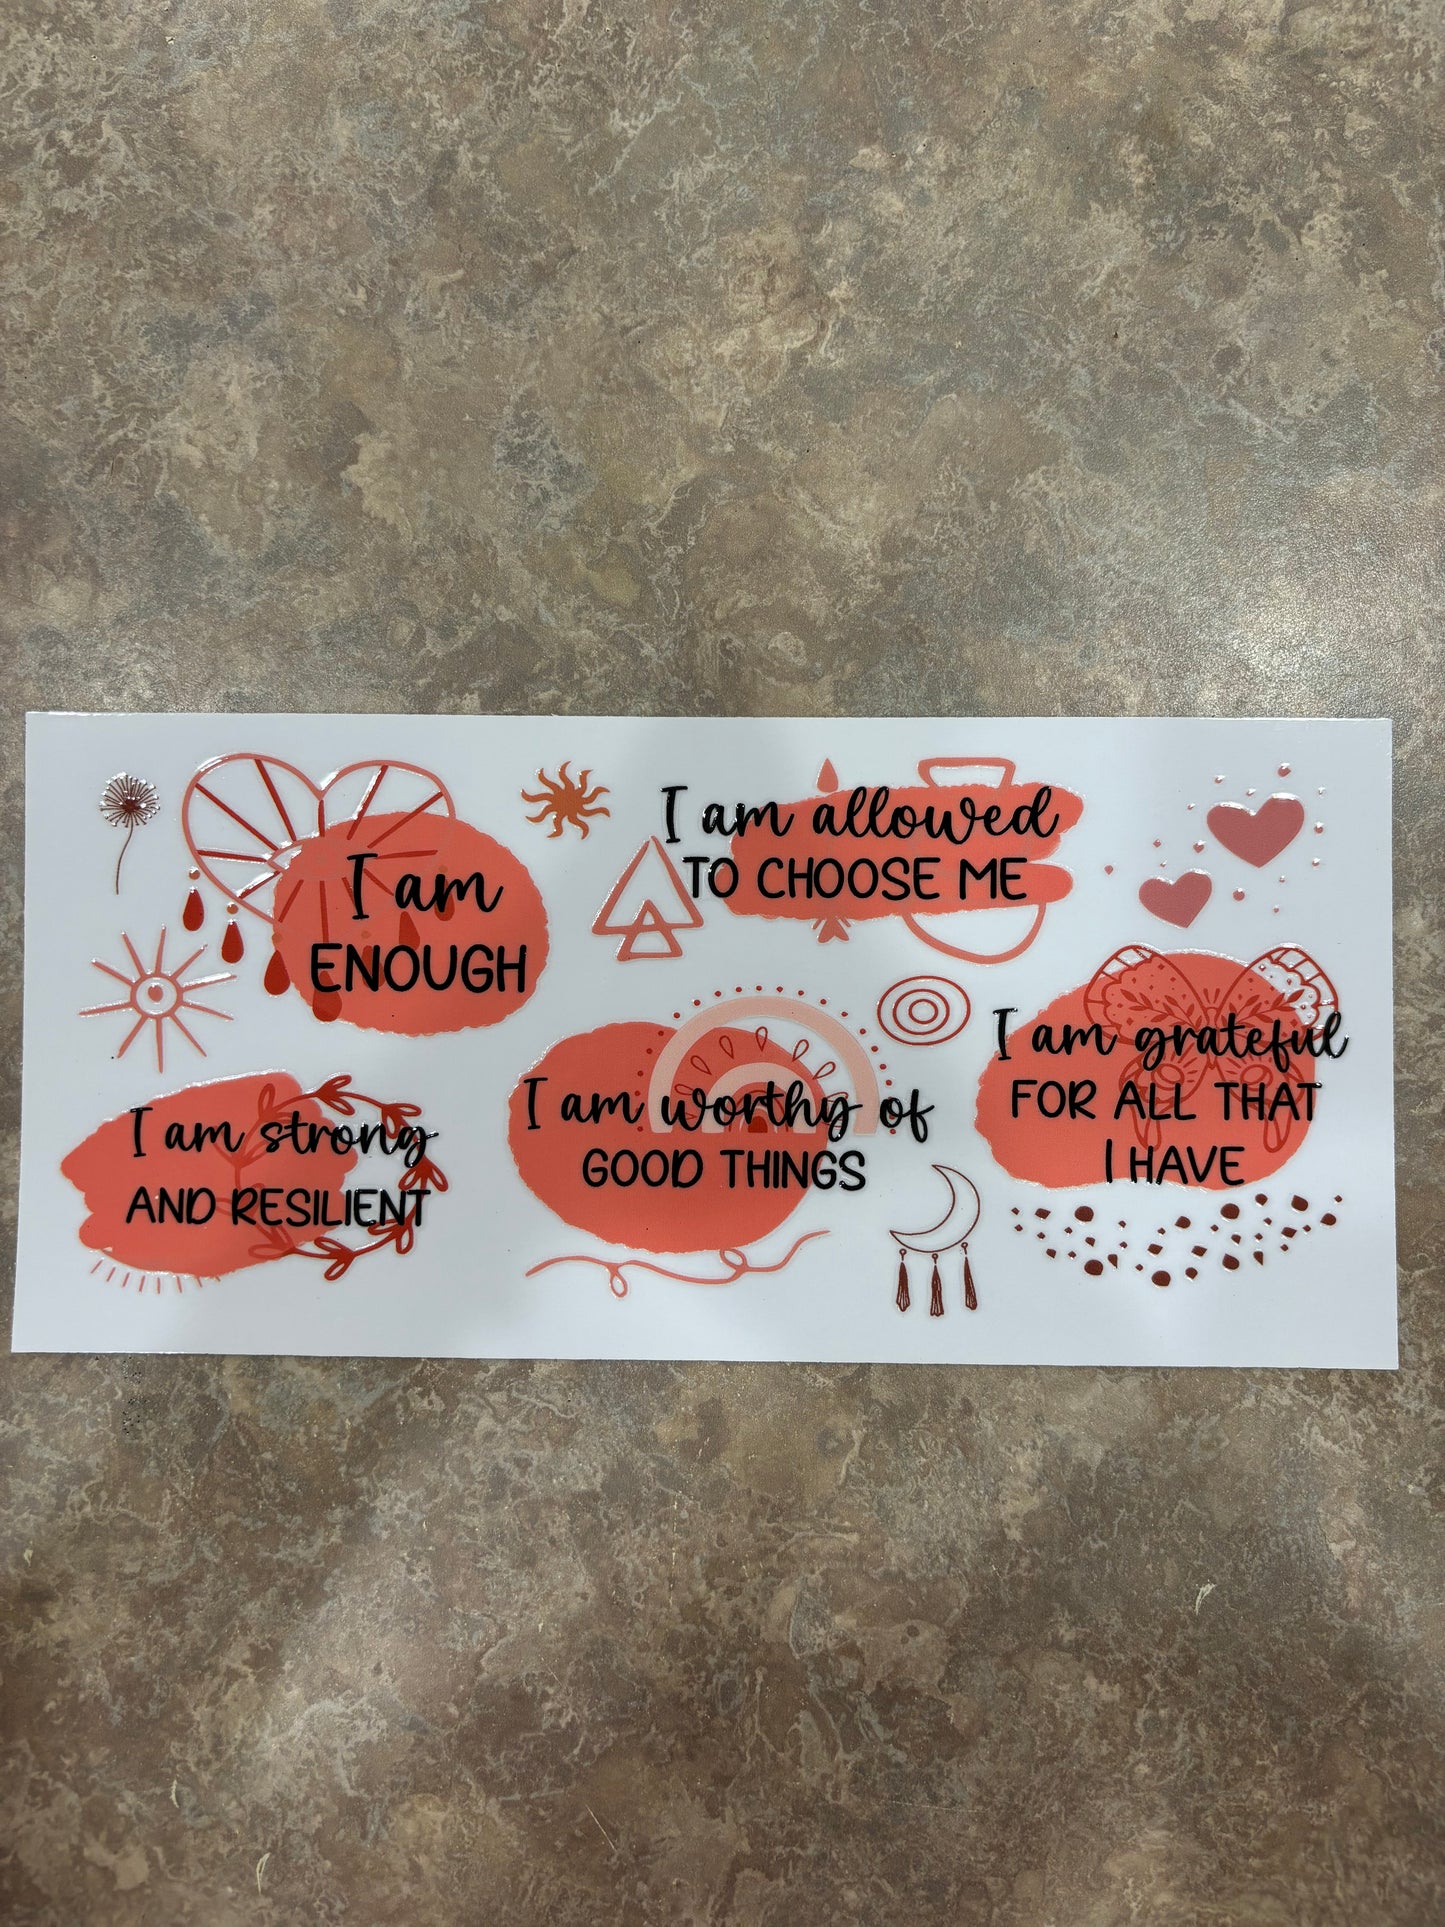 I am
ENOUGH
I am allowed
TO CHOOSE ME
I am strong
AND RESILIENT
I am worthy of
GOOD THINGS
I am grateful
FOR ALL THAT
I HAVE